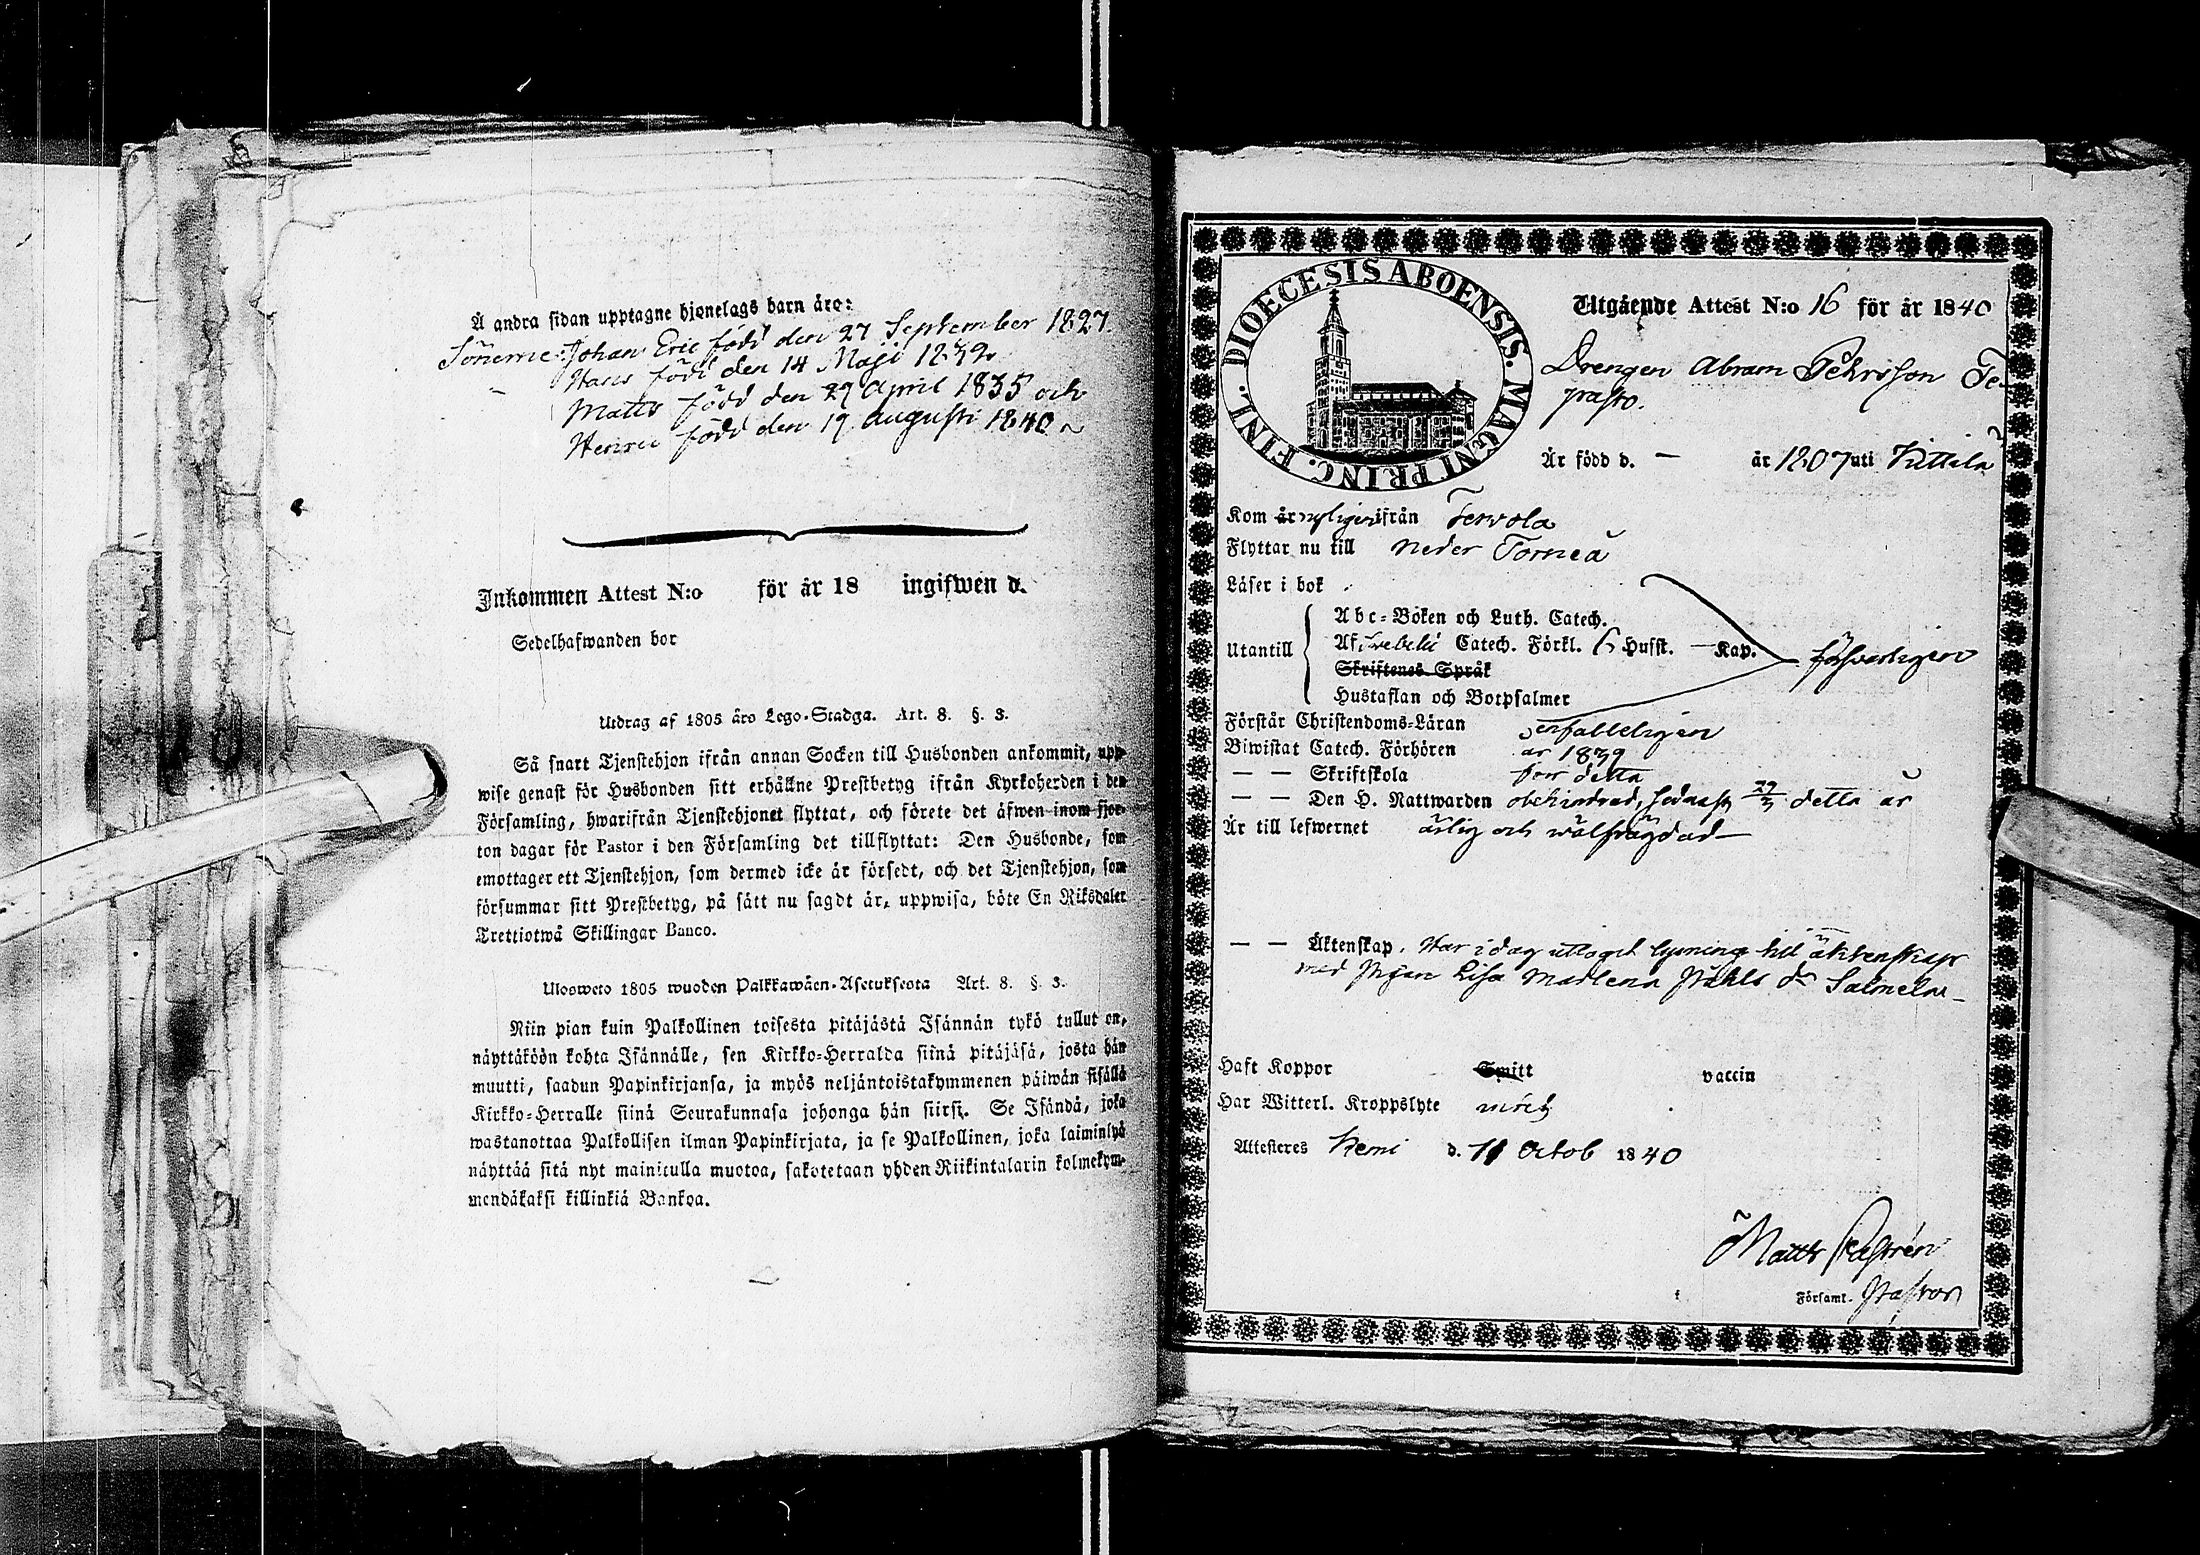 Å andra sidan upptagne hjonelags barn äro:
Sönerne Johan Eric född den 27 September 1827.
Hans född den 14 Maji 1832
Matts född den 29 April 1835 och
Henric född den 19 Augusti 1840
Inkommen Attest N:o för år 18 ingifwen d.
Sedelhafwanden bor
Utdrag af 1805 års Lego-Stadga. Art. 8. §. 3.
Så snart Tjenstehjon ifrån annan Socken till Husbonden ankommit, upp-
wise genast för Husbonden sitt erhållne Prestbetyg ifrån Kyrkoherden i den
Församling, hwarifrån Tjenstehjonet flyttat, och förete det äfwen inom fjor-
ton dagar för Pastor i den Församling det tillflyttat: Den Husbonde, som
emottager ett Tjenstehjon, som dermed icke är försedt, och det Tjenstehjon, som
försummar sitt Prestbetyg, på sätt nu sagdt är, uppwisa, böte En Riksdaler
Trettiotwå Skillingar Banco.
Ulosweto 1805 wuoden Palkkawäen-Asetuksesta Art. 8. §. 3.
Niin pian kuin Palkollinen toisesta pitäjästä Isännän tykö tullut on,
näyttäköön kohta Isännälle, sen Kirkko-Herralda siinä pitäjäsä, josta hän
muutti, saadun Papinkirjansa, ja myös neljäntoistakymmenen päiwän sisällä
Kirkko-Herralle siinä Seurakunnasa johonga hän siirsi. Se Isändä, joka
wastanottaa Palkollisen ilman Papinkirjata, ja se Palkollinen, joka laiminlyö
näyttää sitä nyt mainitulla muotoa, sakotetaan yhden Riikintalarin kolmekym-
mendäkaksi killinkiä Bankoa.
DIOECESIS ABOENSIS. MAGNI PRINC. FINL.
Utgående Attest N:o 16 för år 1840
Drengen Abram Pehrsson Te-
prasto.
Är född d. — år 1807 uti Kittilä
Kom år nyligen ifrån Tervola
Flyttar nu till Neder Torneå
Läser i bok
Abc-Boken och Luth. Catech.
Utantill Af Svebelii Catech. Förkl. 6 Husst. — Kap. försvarligen
Skriftenes Språk
Hustaflan och Botpsalmer
Förstår Christendoms-Läran enfalleligen
Biwistat Catech. Förhören år 1839
— — Skriftskola förr detta
— — Den H. Nattwarden obehindrad, sednast 29/3 detta år
Är till lefwernet ärlig och wälfrägdad
— — Äktenskap. Har i dag uttagit lysning till äktenskap
med Pigan Lisa Madlena
Haft Koppor Smitt vaccin
Har Witterl. Kroppslyte intet
Attesteres Kemi d. 11 Octob 1840
Matth Castrén
Församl. Pastor